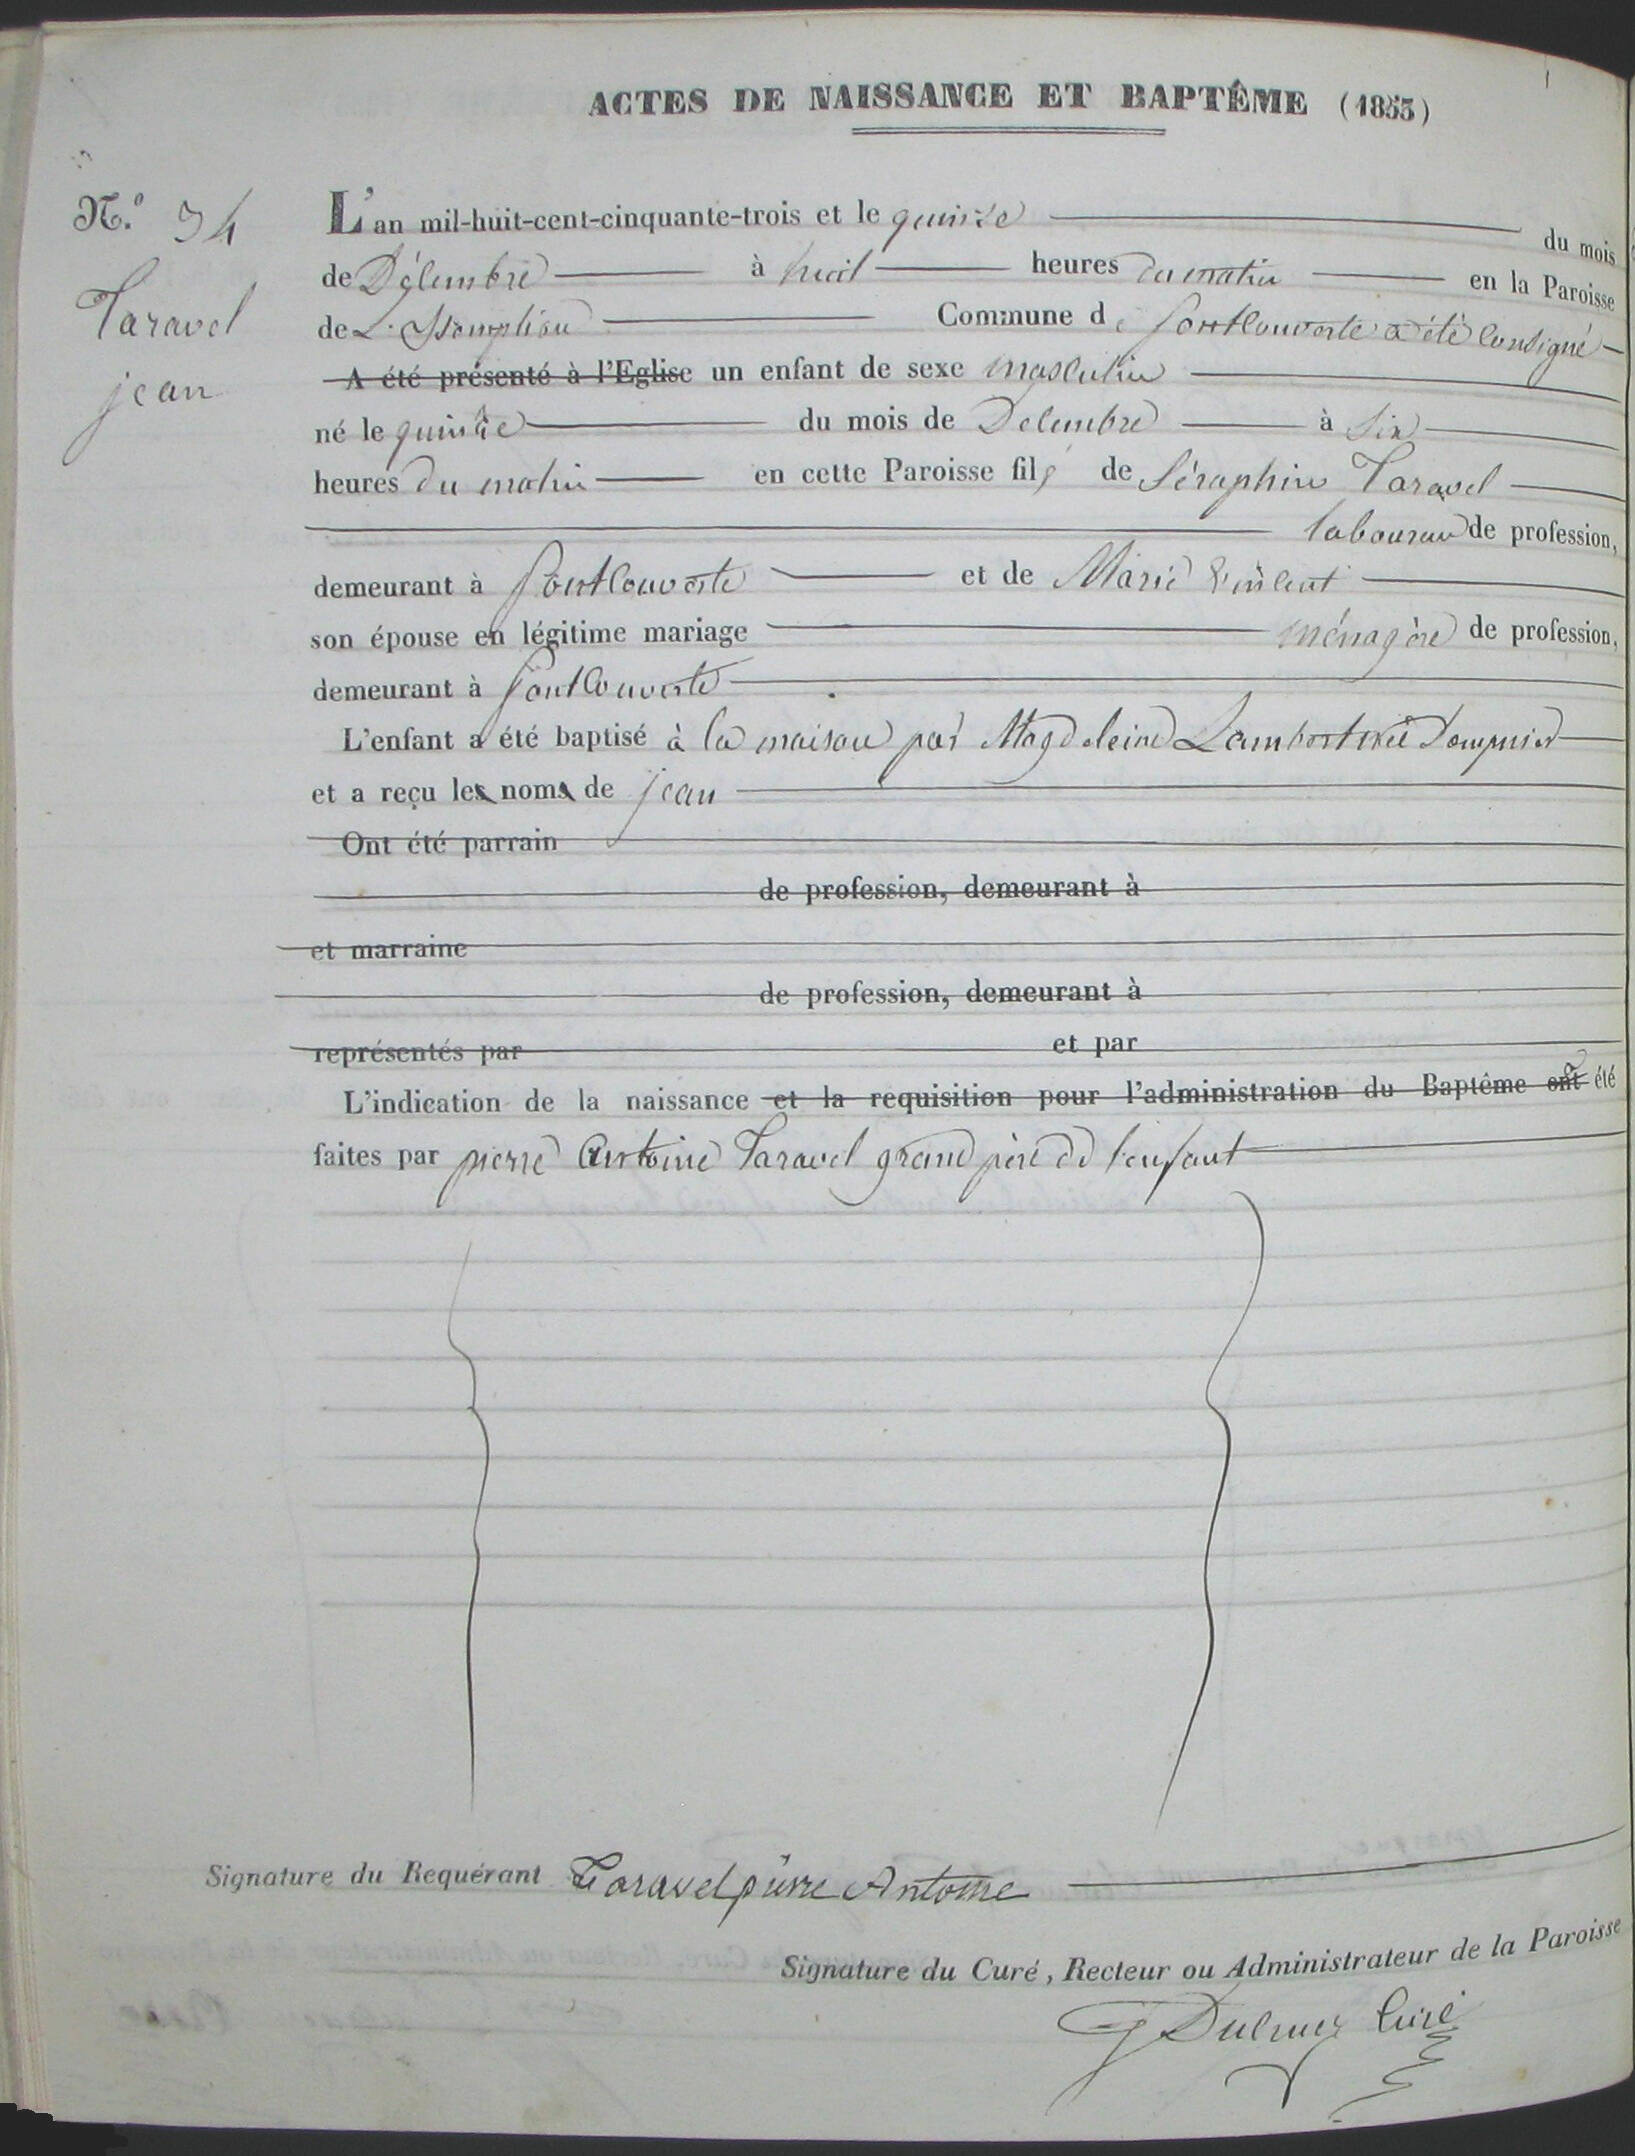 ACTES DE NAISSANCE ET BAPTÊME (1853)
N.º 34
Taravel
jean
L'an mil-huit-cent-cinquante-trois et le quinze du mois
de Décembre à huit heures du matin en la Paroisse
de L'assomption Commune de fontcouverte a été consigné
A été présenté à l'Eglise un enfant de sexe masculin
né le quinze du mois de Decembre à six
heures du matin en cette Paroisse fils de Séraphin Taravel
laboureur de profession,
demeurant à fontcouverte et de Marie Vincent
son épouse en légitime mariage ménagère de profession,
demeurant à fontcouverte
L'enfant a été baptisé à la maison par Magdeleine Lambert née Dompnier
et a reçu les noms de jean
Ont été parrain
de profession, demeurant à
et marraine
de profession, demeurant à
représentés par et par
L'indication de la naissance et la requisition pour l'administration du Baptême ont a été
faites par pierre Antoine Taravel grand père de l'enfant
Signature du Requérant Taravel pierre Antoine
Signature du Curé, Recteur ou Administrateur de la Paroisse
Curé